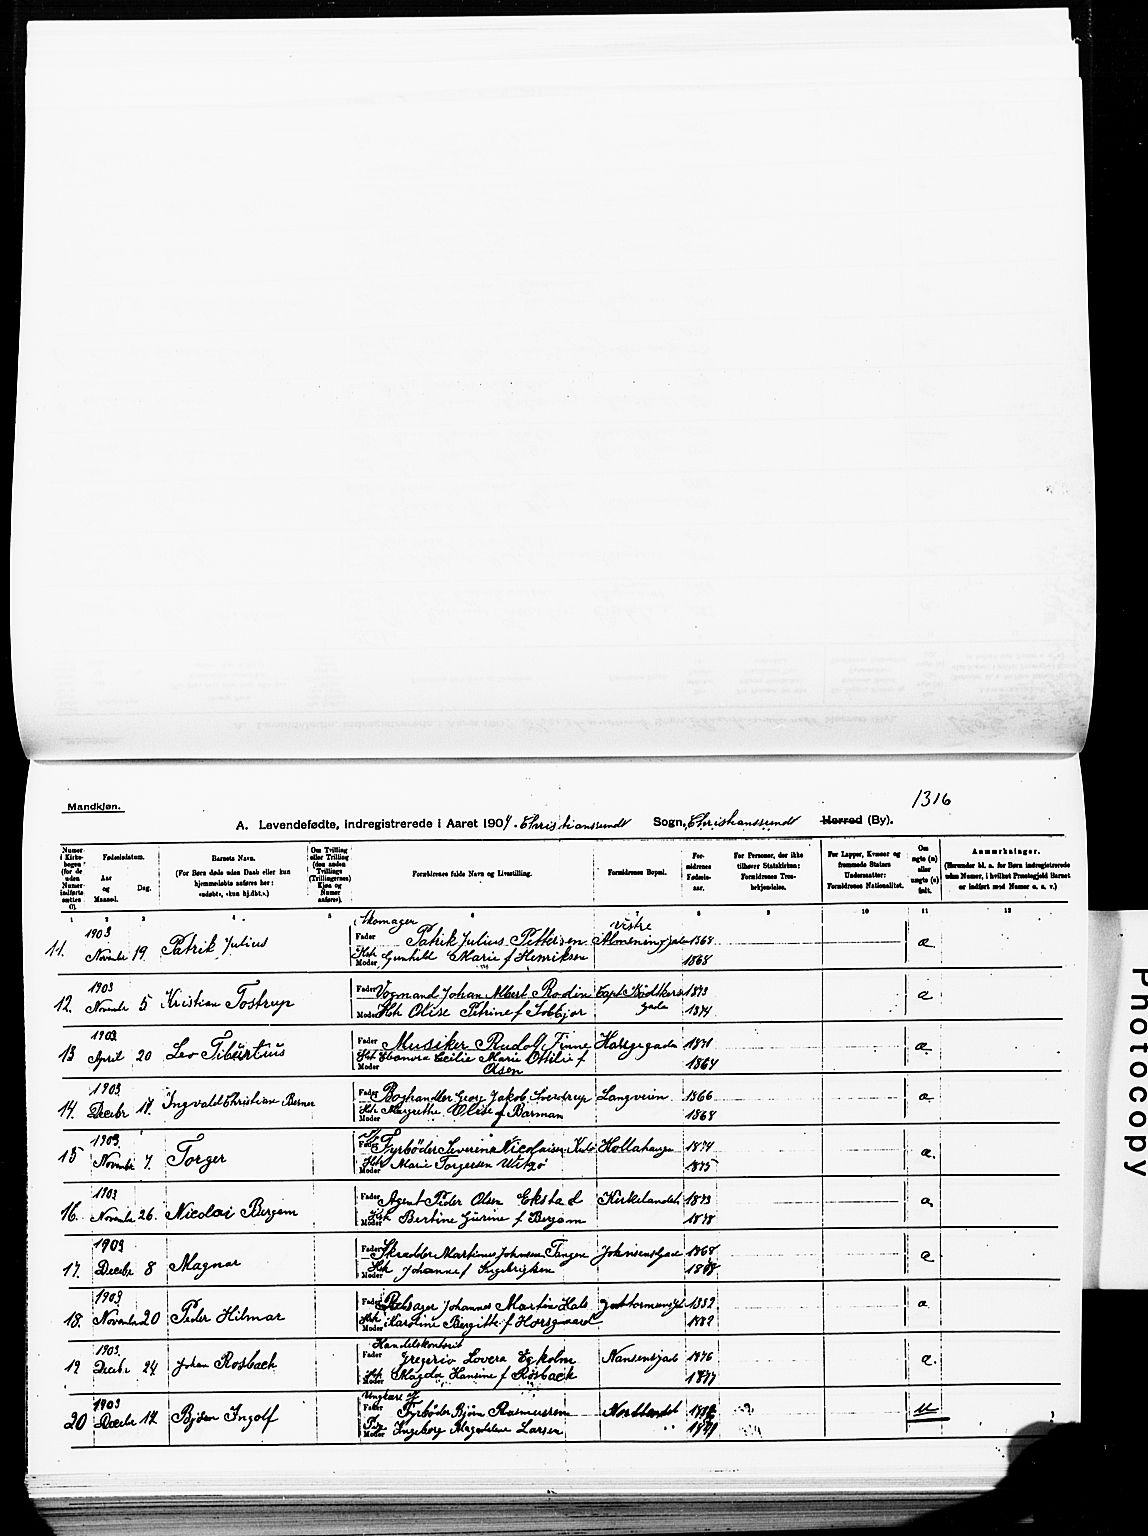 1316
Mandkjøn.
A. Levendefødte, indregistrerede i Aaret 1904. Christianssundt Sogn, Christianssundt Herred (By).
Numer i Kirkebogen (for de uden Numer indførte sættes 0).
Fødselsdatum. Aar og Maaned. Dag.
Barnets Navn. (For Børn døde uden Daab eller kun hjemmedøbte anføres her: «udøbt», «kun hj.døbt».)
Om Tvilling eller Trilling (den anden Tvillings (Trillingernes) Kjøn og Numer anføres).
Forældrenes fulde Navn og Livsstilling.
Forældrenes Bopæl.
Forældrenes Fødselsaar.
For Personer, der ikke tilhører Statskirken: Forældrenes Trosbekjendelse.
For Lapper, Kvæner og fremmede Staters Undersaatter: Forældrenes Nationalitet.
Om ægte (æ) eller uægte (u) født.
Anmærkninger. (Herunder bl. a. for Børn indregistrerede uden Numer, i hvilket Præstegjeld Barnet er indført med Numer o. s. v.)
1 2 3 4 5 6 7 8 9 10 11 12
Skomager vistre
11. 1903 Novmbr 19 Patrik Julius Fader Patrik Julius Pettersen Almeninggade 1868 æ
Htr Moder Gunhild Marie f Henriksen 1868
12. 1903 Novmbr 5 Kristian Tostrup Fader Vogmand Johan Albert Rodin Capt. Bødtkers gade 1873 æ
Moder Htr Olise Petrine f 1874
13 1903 April 20 Leo Tiburtius Fader Musiker Rudolf Finne Hauggegada 1871 æ
Htr Moder Eleonora Cecilie Marie Ottilie f Olsen 1864
14. 1903 Decbr 17. Ingvald Christian Berner Fader Boghandler Georg Jakob Sverdrup Langveien 1866 æ
Htr Moder Margrethe Olise f Barman 1868
15 1903 Novmbr 7. Torger Fader Fyrbøder Severin Nicolaisen Hollahaugen 1874 æ
Htr Moder Marie Torgersen 1875
16. 1903 Novmbr 26. Nicolai Bergem Fader Agent Peder Olsen Ekstad Kirkelandet 1873 æ
Htr Moder Bertine Gurine f Bergem 1878
17. 1903 Decbr 8 Magnar Fader Skrædder Martinus Johnsen Tangen Johnsensgade 1868 æ
Htr Moder Johanne f Ingebrigtsen
18. 1903 Novmbr 20 Peder Hilmar Fader Johannes Martin Hals 1882 æ
Htr Moder Karoline Bergitte f Horsgaard 1882
Handelskontorist
19 1903 Decbr 24 Johan Rosback Fader Gregerio Lovera Egholm Nansensgade 1876 æ
Htr Moder Magda Hansine f Rosback 1877
Ungkarl og
20 1903 Decbr 17 Bjørn Ingolf Fader Fyrbøder Bjørn Rasmussen Nordlandet u
Moder Ingeborg Magdalene Larsen
Photocopy